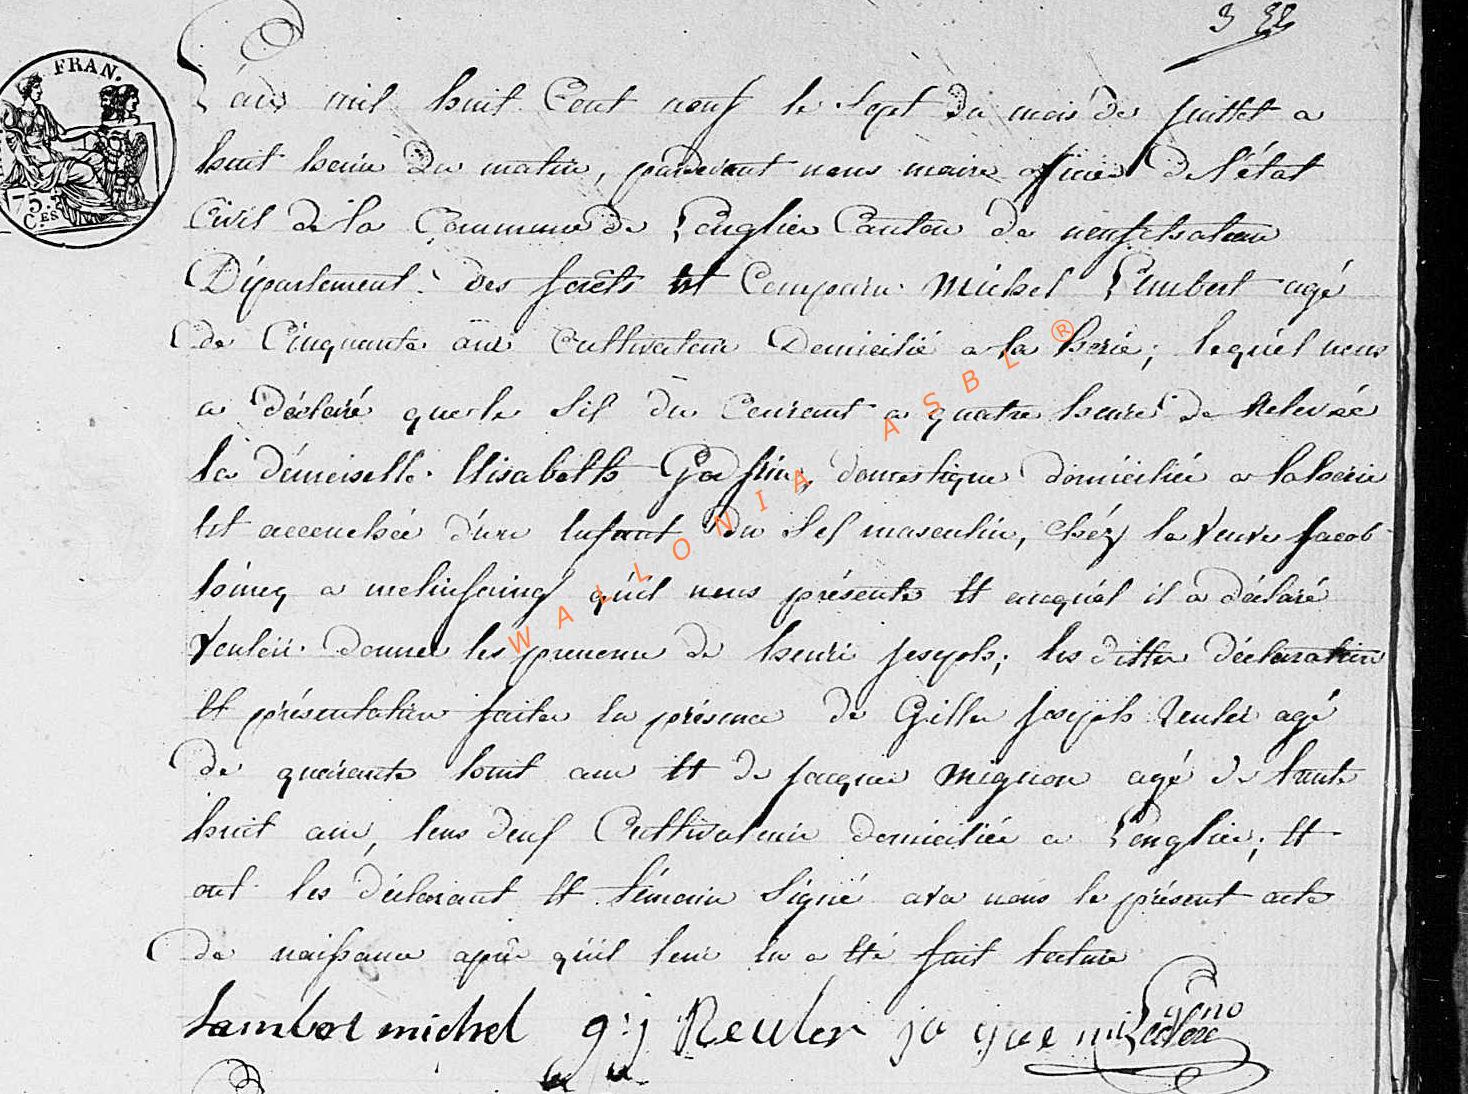 3 EE
FRAN.
75.
C.ES
L'an mil huit Cent neuf le Sept du mois de juillet a
huit heure du matin, pardevant nous maire officier de l'état
Civil de la Commune de Longlier Canton de neufchateau
Département des forêts Est Comparu Michel Lambert agé
de Cinquante ans Cultivateur Domicilié a la herie; lequel nous
a déclaré que le Six du Courant a quatre heure de Relevée
la démoiselle Elisabeth domestique domiciliée a laherie
Est accouchée d'un Enfant du Sex masculin, chéz la Veuve Jacob
a qu'il nous présente Et auquél il a déclaré
Vouloir donner les prenom de henri joseph; les ditte déclaration
Et présentation faite En présence de Gille joseph Reuler agé
de quarante ans Et de jacque Mignon agé de trente
huit ans, tous deux Cultivateur domiciliée a Longlier; Et
ont les déclarant Et témoin Signé avec nous le présent acte
de naissance aprè qu'il leur En a Eté fait Lecture
Lambert michel g:j Reuler ja que mi gno
WALLONIA ASBL ®